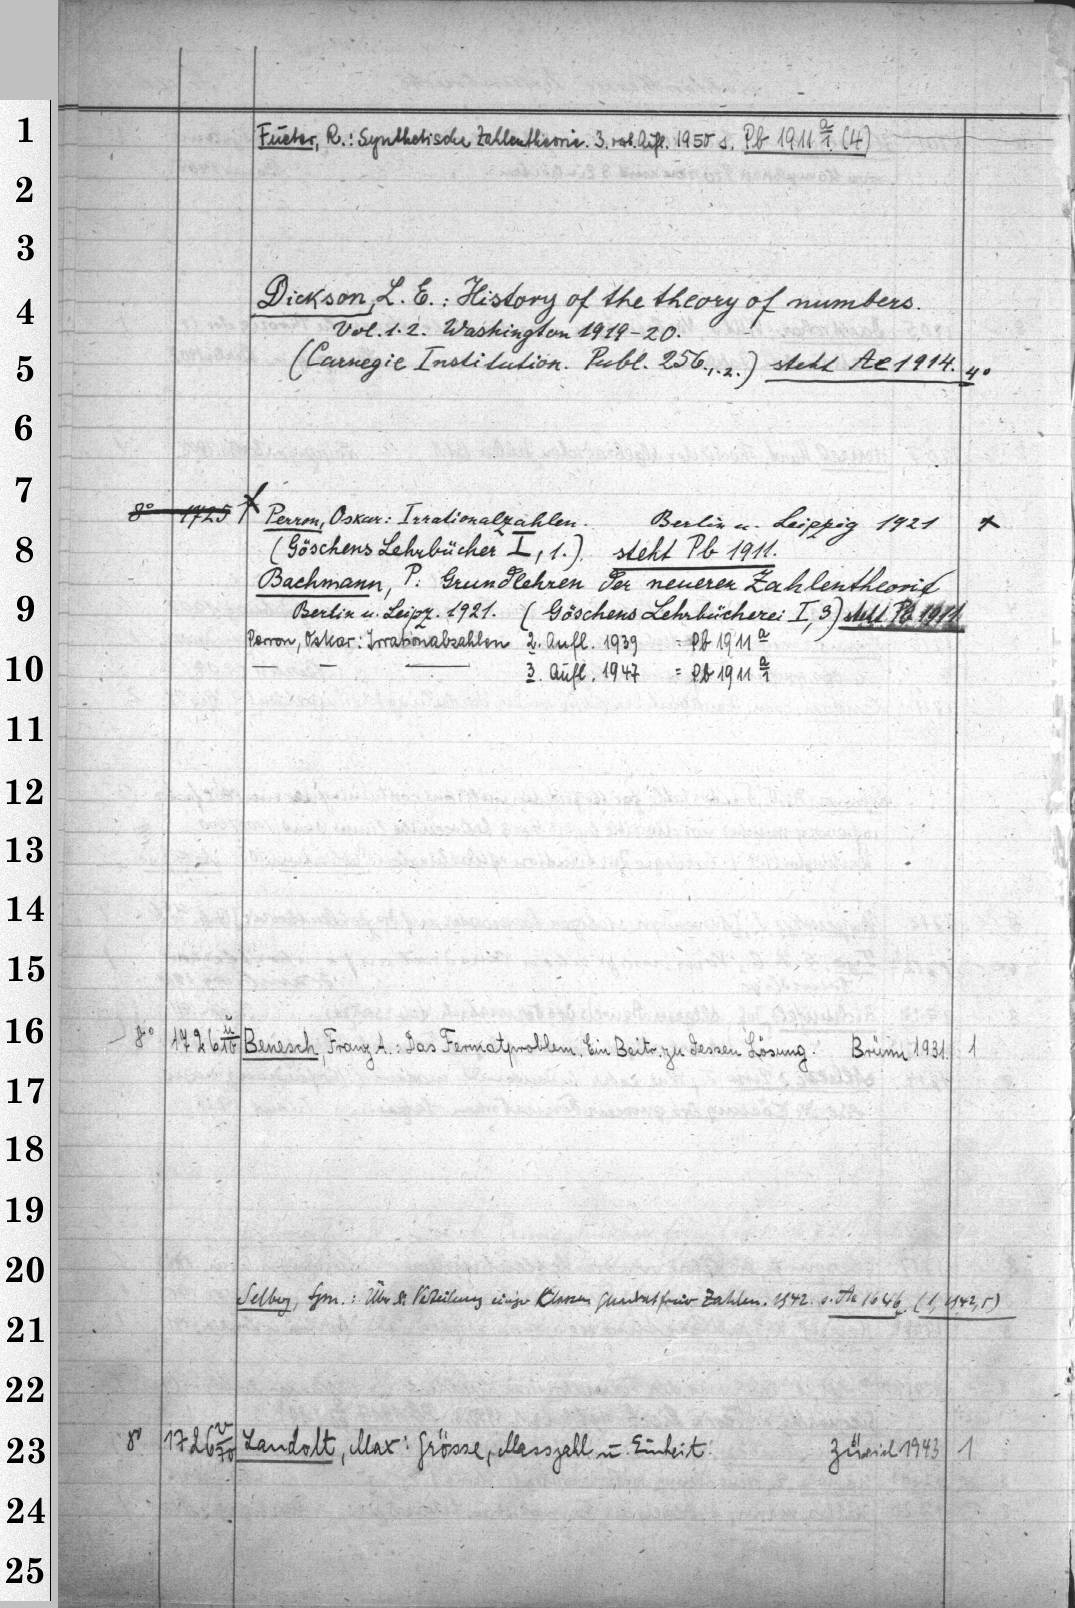 1
Fueter, R.: Synthetische Zahlentheorie. 3. Aufl. 1950 s. Pb 1911 a/1. (4)
2
3
4
Dickson, L. E.: History of the theory of numbers.
Vol. 1. 2. Washington 1919-20.
5
(Carnegie Institution. Publ. 256.,1.2.) steht Ae 1914. 4°
6
7
8° 1725 Perron, Oskar: Irrationalzahlen. Berlin u. Leipzig 1921
8
(Göschens Lehrbücher I, 1.) steht Pb 1911.
Bachmann, P: Grundlehren der neueren Zahlentheorie
9
Berlin u. Leipz. 1921. (Göschens Lehrbücherei I, 3) steht Pb 1911
Perron, Oskar: Irrationalzahlen 2. Aufl. 1939 = Pb 1911 a
10
— — — 3. Aufl. 1947 = Pb 1911 a/1
11
12
13
14
15
16
8° 1726 Benesch, Franz A.: Das Fermatproblem. Ein Beitr. zu dessen Lösung. Brünn 1931. 1
17
18
19
20
Selberg, Über Verteilung einiger Klassen quadratfreier Zahlen. 1942. s. Ae 1646 (1, 1942, 5)
21
22
23
8° 1726 Landolt, Max: Grösse, Masszahl u. Einheit. Zürich 1943 1
24
25